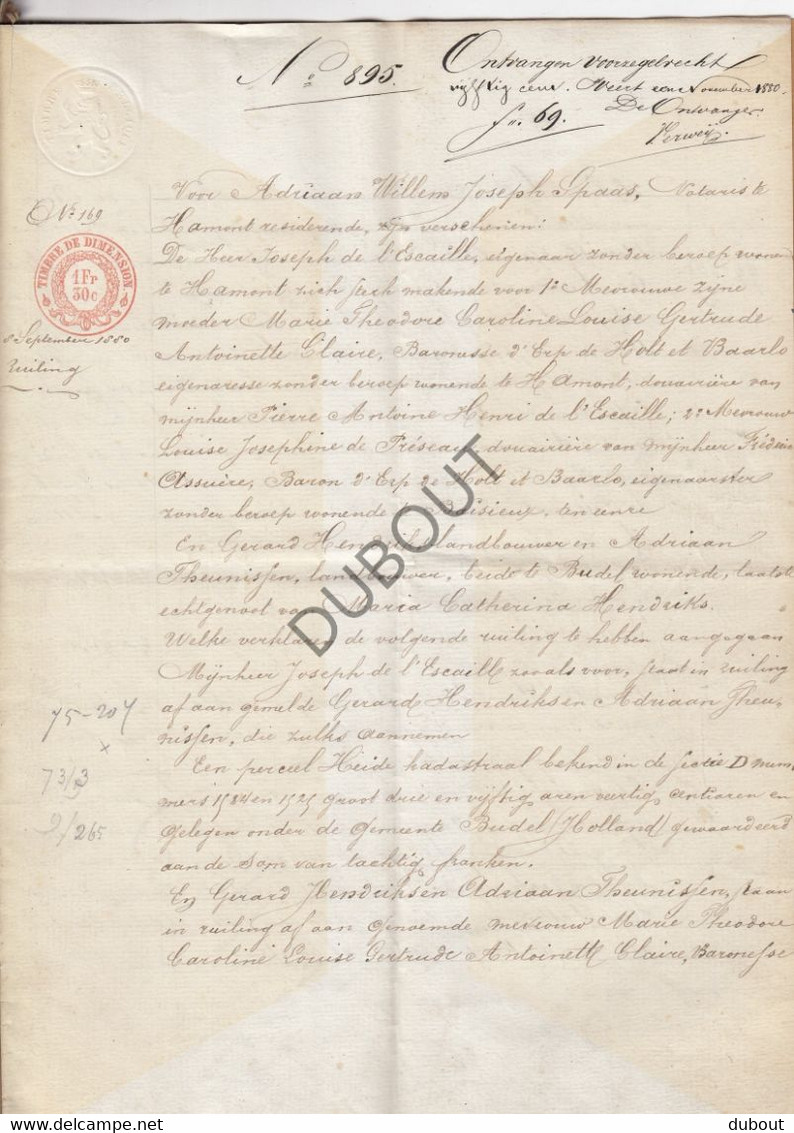 No 895.
Ontvangen voor zegelrecht
vijftig cent. Weert november 1880.
De Ontvanger
fn. 69.
No 169
TIMBRE DE DIMENSION
1 Fr
30 c
8 September 1880
Ruiling
Voor Adriaan Willem Joseph Spaas, Notaris te
Hamont residerende, zijn verschenen:
De Heer Joseph de l'Escaille, eigenaar zonder beroep wonende
te Hamont zich sterk makende voor 1e Mevrouwe zyne
moeder Marie Theodore Caroline Louise Gertrude
Antoinette Claire, Baronesse d'Erp de Holt et Baarlo
eigenaresse zonder beroep wonende te Hamont, douairière van
mijnheer Pierre Antoine Henri de l'Escaille; 2e Mevrouw
Louise Josephine de Préseau, douairière van mijnheer Fréderic
Assuère, Baron d'Erp de Holt et Baarlo, eigenaarster
zonder beroep wonende te Baisieux, ten eenre
En Gerard Hendriks landbouwer en Adriaan
Theunissen, landbouwer, beide te Budel wonende, laatste
echtgenoot van Maria Catherina Hendriks.
Welke verklaren de volgende ruiling te hebben aangegaan
Mijnheer Joseph de l'Escaille zooals voor, staat in ruiling
af aan gemelde Gerard Hendriks en Adriaan Theu-
nissen, die zulks aannemen
Een perceel Heide kadastraal bekend in de sectie D num-
mers 1524 en 1525 groot drie en vijftig aren veertig centiaren en
gelegen onder de gemeente Budel (Holland) gewaardeerd
aan de som van tachtig franken.
En Gerard Hendriks en Adriaan Theunissen, staan
in ruiling af aan genoemde mevrouw Marie Theodore
Caroline Louise Gertrude Antoinette Claire, Baronesse
75-207
x
73/3
2/265
DUBOUT
delcampe.net
dubout